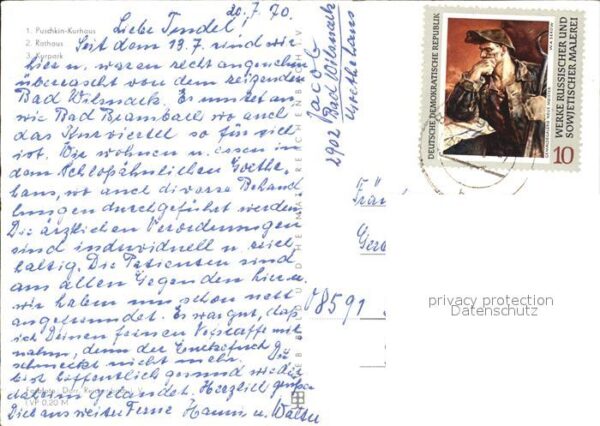 20.7.70.
Liebe Trudel,
1. Puschkin-Kurhaus
2. Rathaus
3. Kurpark
Seit dem 13.7. sind wir
hier u. waren recht angenehm
überrascht von dem reizenden
Bad Wilsnack. Es mutet an
wie Bad Brambach wo auch
das Kurviertel so für sich
ist. Wir wohnen u. essen in
dem schloßähnlichen Goethe-
haus, wo auch diverse Behand
lungen durchgeführt werden.
Die ärztlichen Verordnungen
sind individuell u. reich
haltig. Die Patienten sind
aus allen Gegenden hier u.
wir haben uns schon nett
angefreundet. Es war gut, daß
ich Deinen feinen Neskaffe mit
nahm, denn der
schmeckt nicht mehr. Du
bist hoffentlich gesund wieder
daheim gelandet. Herzlich grüßen
Dich aus weiter Ferne Hanni u. Walter
TVP 0,20 M
Jacob
2902 Bad Wilsnack
Goethehaus
BILD UND HEIMAT REICHENBACH I. V.
DEUTSCHE DEMOKRATISCHE REPUBLIK
WERKE RUSSISCHER UND
SOWJETISCHER MALEREI
10
Fräu
Ger
08591
privacy protection
Datenschutz